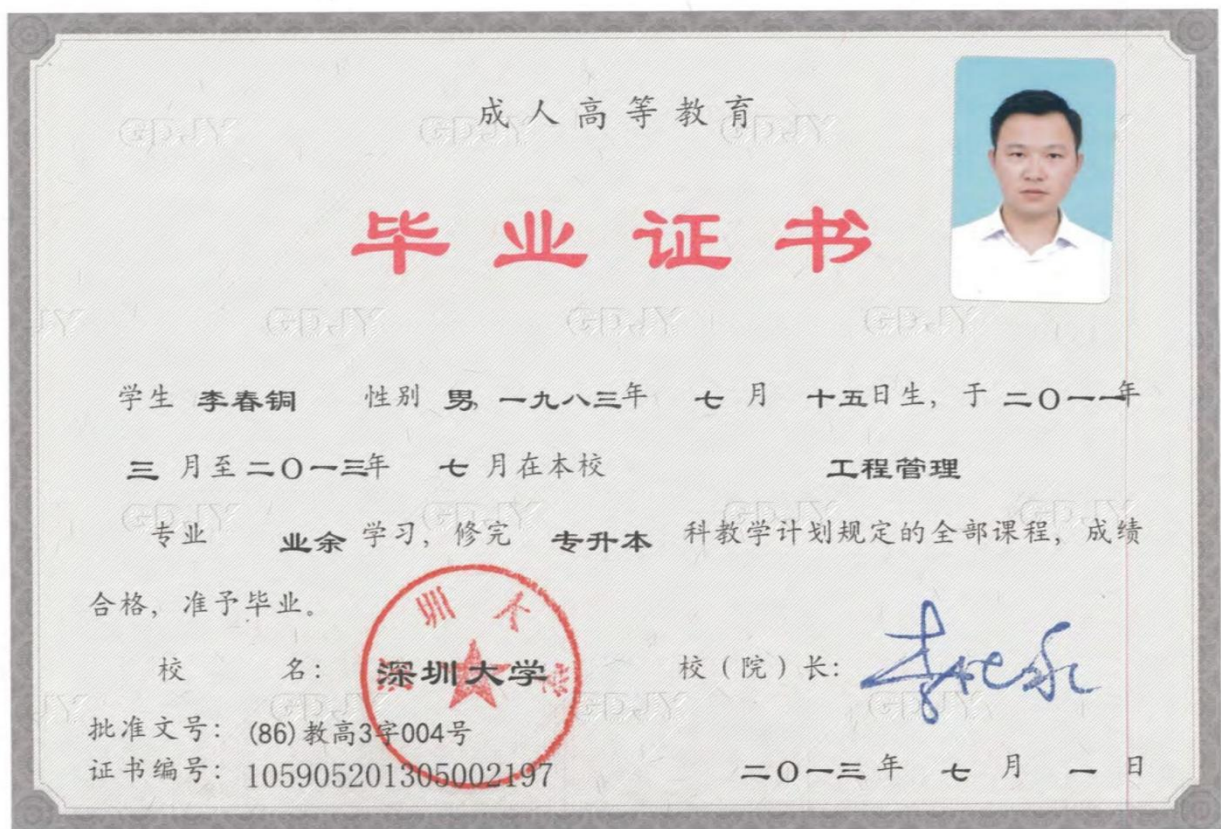 成人高等教育
毕业证书
学生 李春铜 性别 男, 一九八三年 七 月 十五日生, 于 二〇一一年
三 月至 二〇一三年 七 月在本校 工程管理
专业 业余 学习, 修完 专升本 科教学计划规定的全部课程, 成绩
合格, 准予毕业。
校 名: 深圳大学 校(院)长:
批准文号: (86)教高3字004号
证书编号: 105905201305002197 二〇一三 年 七 月 一 日
深圳大学
GDJY